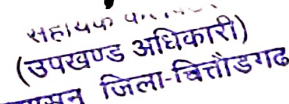 सहायक
(उपखण्ड अधिकारी)
जिला-चित्तौडगढ